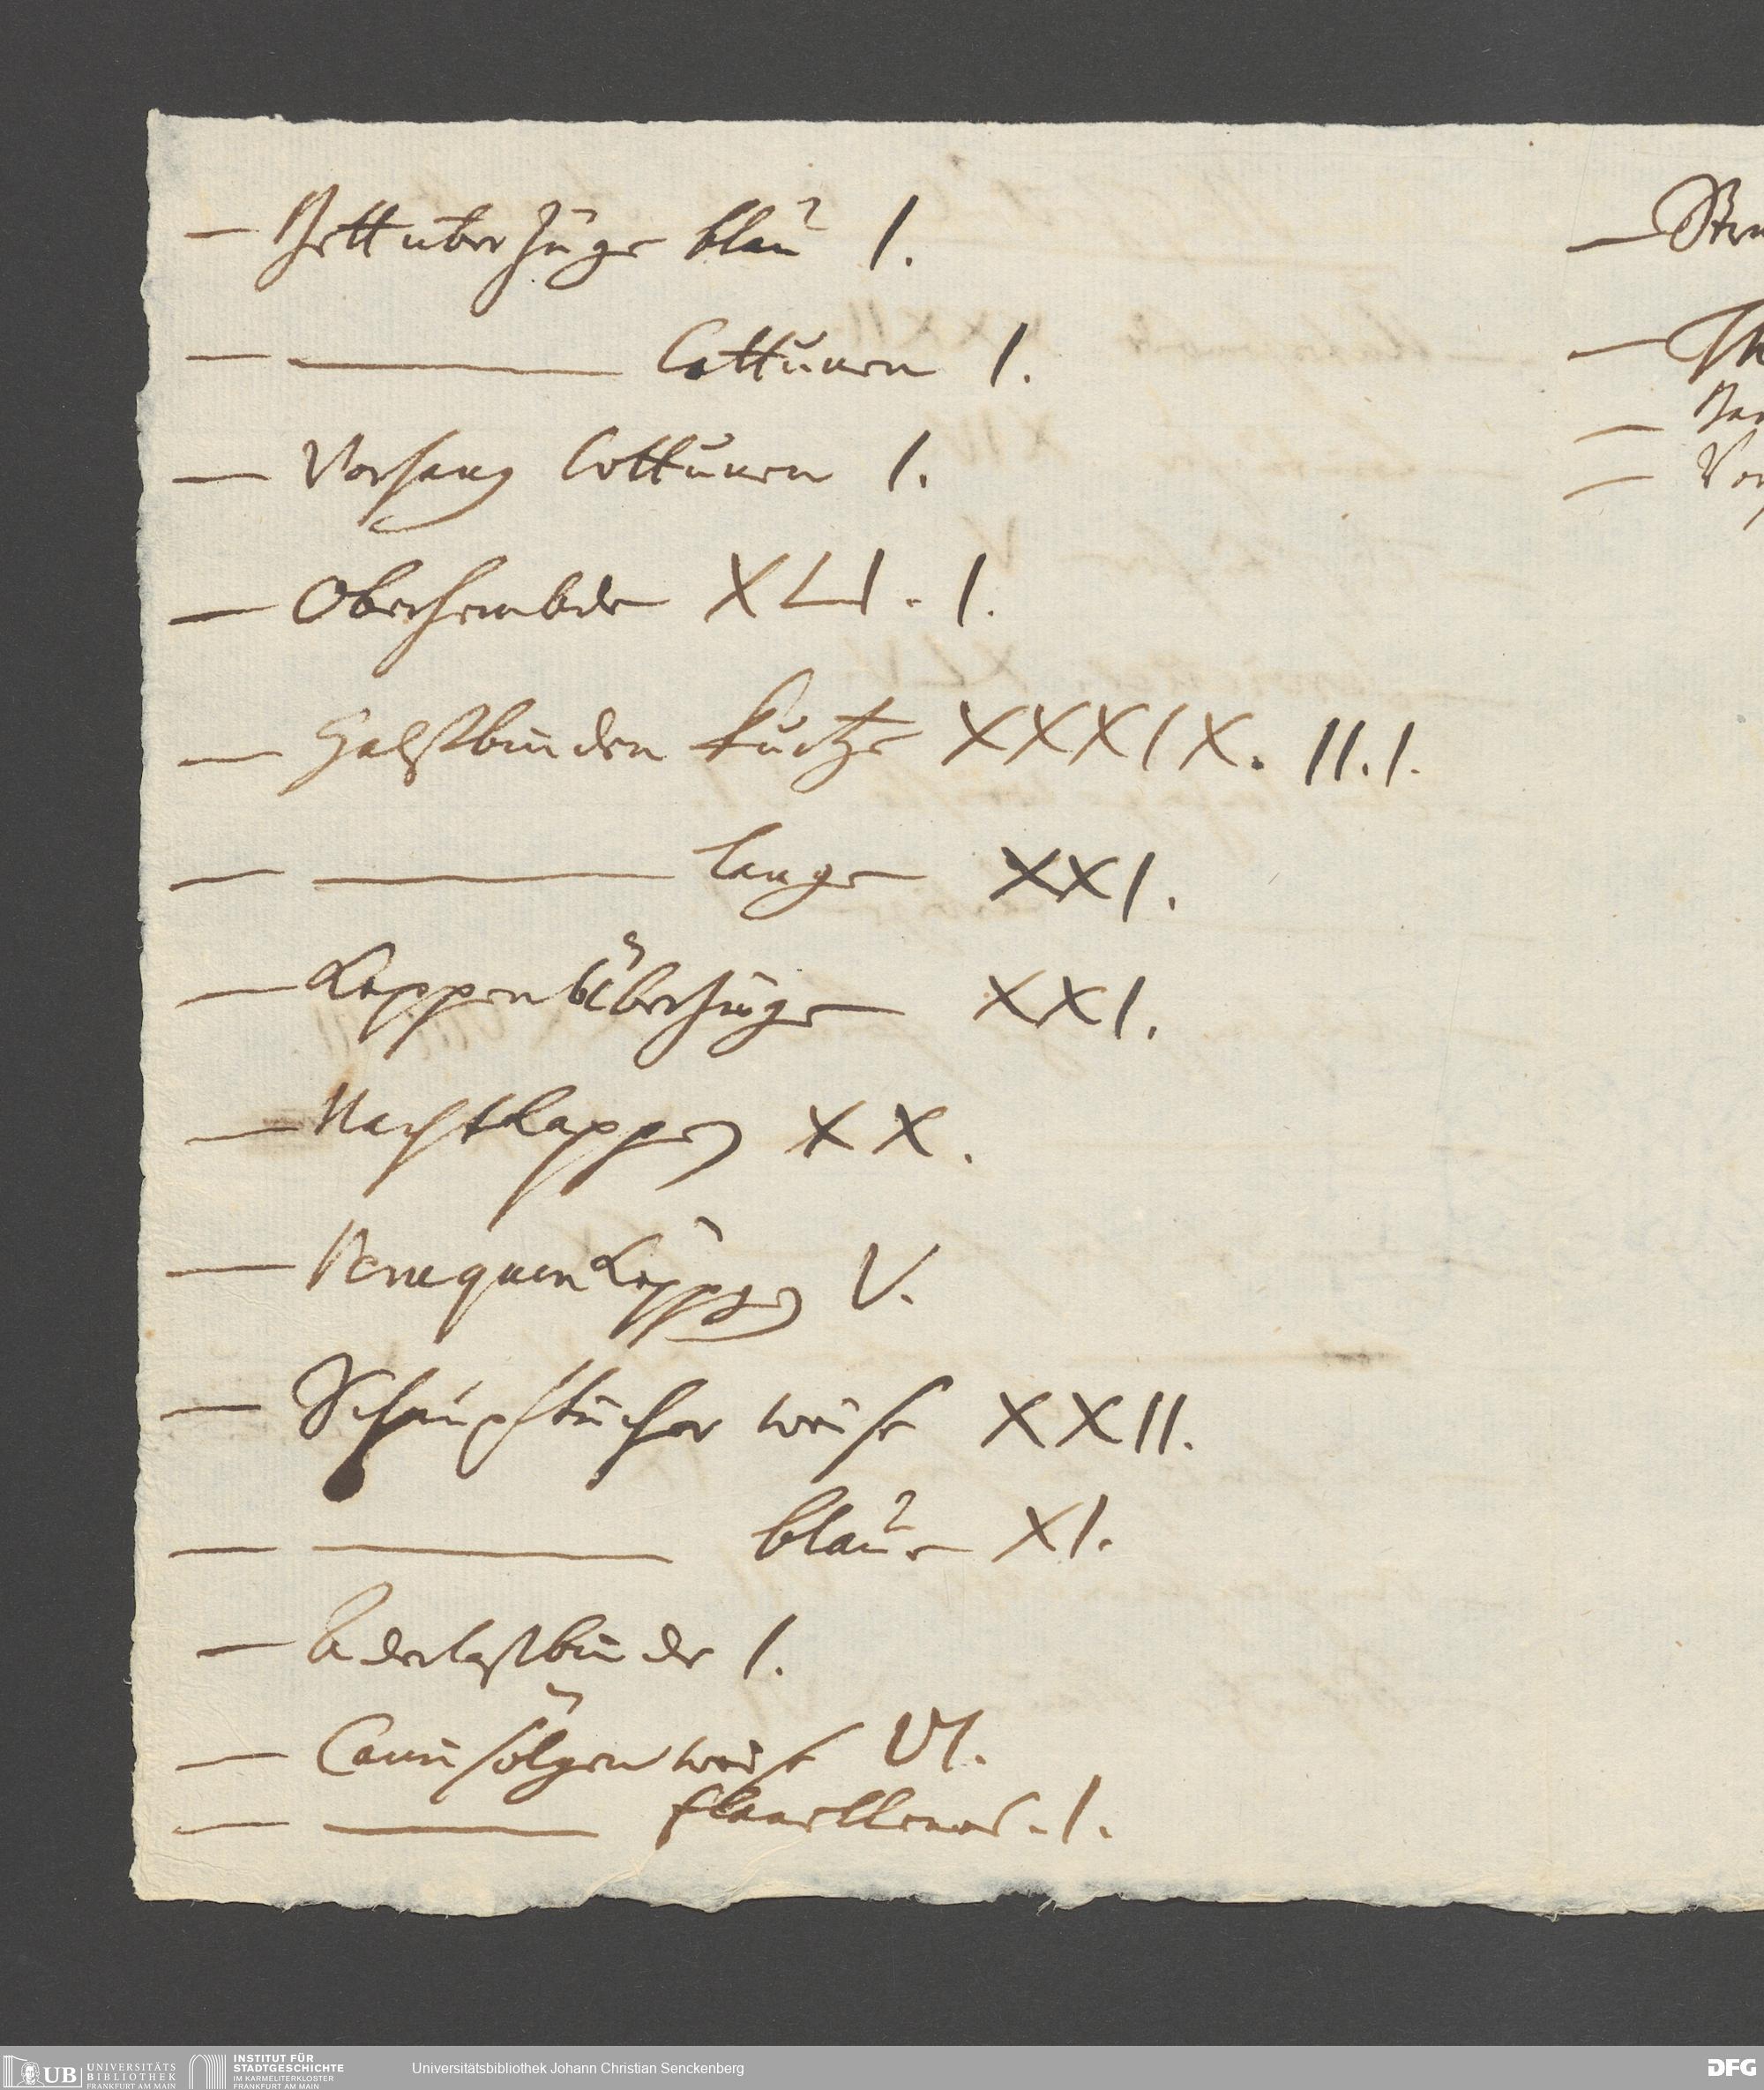 — Bettüberzüge blau I.
— ——— Cottunen I.
— Vorhang Cottunen I.
— Oberhembder XLI. I.
— Halßbinden kurtze XXXIX. II. I.
— ——— lange XXI.
— Kappen Überzüge XXI.
— Nachtkappen XX.
— Peruquenkäppgen V.
— Schnupftücher weise XXII.
— ——— blaue XI.
— Aderlaßbinde I.
— Camisölgen weise VI.
— ——— flanellenes. I.
— Stru
— Th
—
— Vor
UB UNIVERSITÄTS BIBLIOTHEK FRANKFURT AM MAIN
INSTITUT FÜR STADTGESCHICHTE IM KARMELITERKLOSTER FRANKFURT AM MAIN
Universitätsbibliothek Johann Christian Senckenberg
DFG